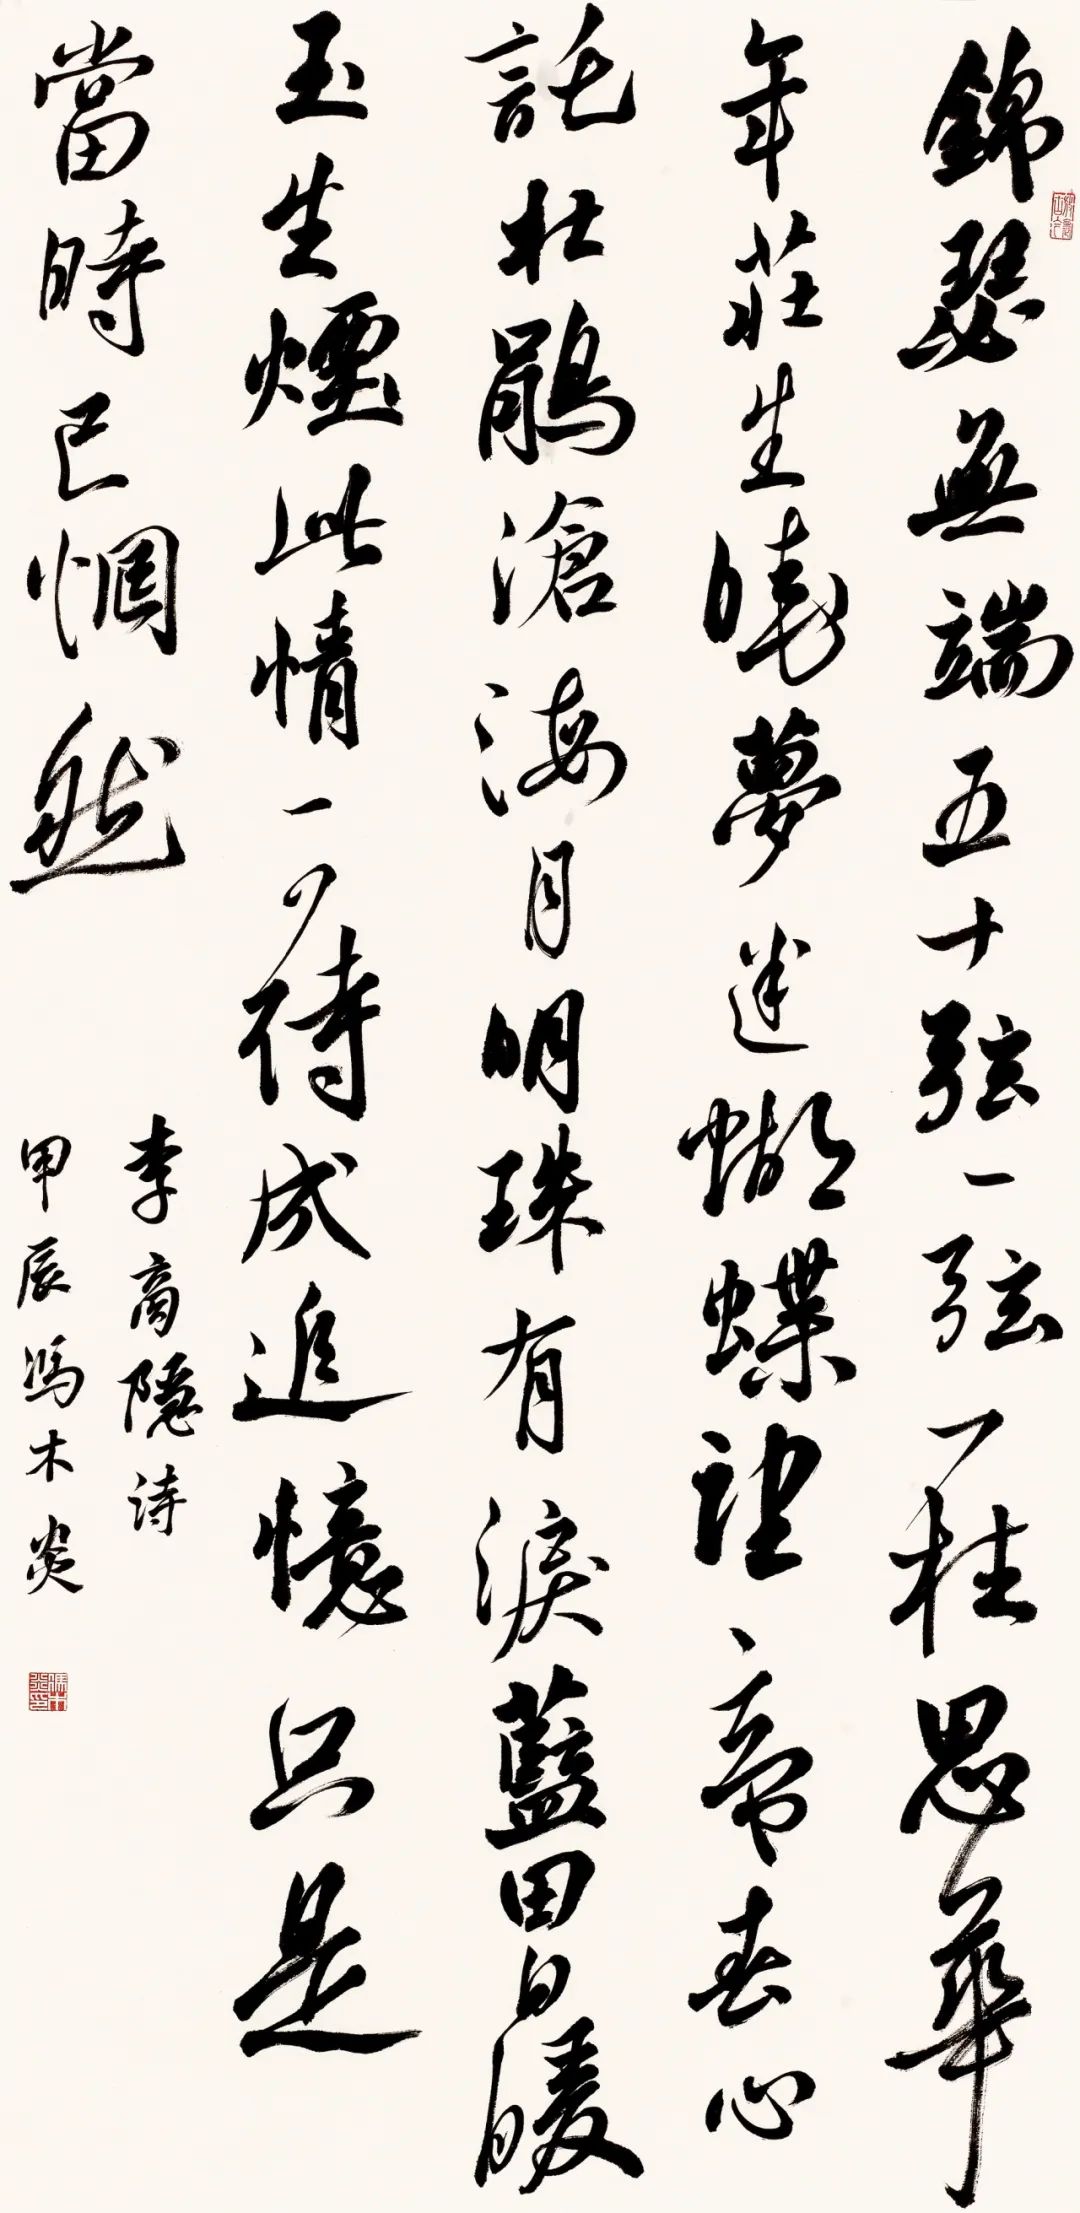 錦瑟無端五十弦一弦一柱思華
年莊生曉夢迷蝴蝶望帝春心
託杜鵑滄海月明珠有淚藍田日暖
玉生煙此情可待成追憶只是
當時已惘然
李商隱詩
甲辰馮木炎